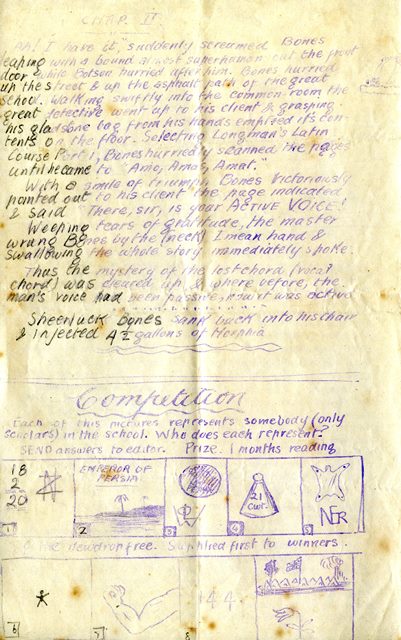 CHAP. II.
Ah! I have it," suddenly screamed Bones
leaping with a bound almost superhuman out the front
door while Botson hurried after him. Bones hurried
up the street & up the asphalt path of the great
School. Walking swiftly into the common room the
great detective went up to his client & grasping
his gladstone bag from his hands emptied it's con-
tents on the floor. Selecting Longman's Latin
Course Part 1, Bones hurriedly scanned the pages
until he came to "Amo, Amas, Amat."
With a smile of triumph Bones victoriously
pointed out to his client the page indicated
& said There, sir, is your ACTIVE VOICE!
Weeping tears of gratitude, the master
wrung Bones by the (neck) I mean hand &
swallowing the whole story immediately spoke.
Thus the mystery of the lost chord (vocal
chord) was cleared up & where before, the
man's voice had been passive, now it was active
Sheerluck Bones sank back into his chair
& injected 4½ gallons of Morphia
Competition
Each of this pictures represents somebody (only
scholars) in the school. Who does each represent.
SEND answers to editor. Prize. 1 months reading
18
2
20
EMPEROR OF
PERSIA
21
Cwt.
NER
1
2
3
4
5
dewdrop free. Supplied first to winners
44
6
7
8